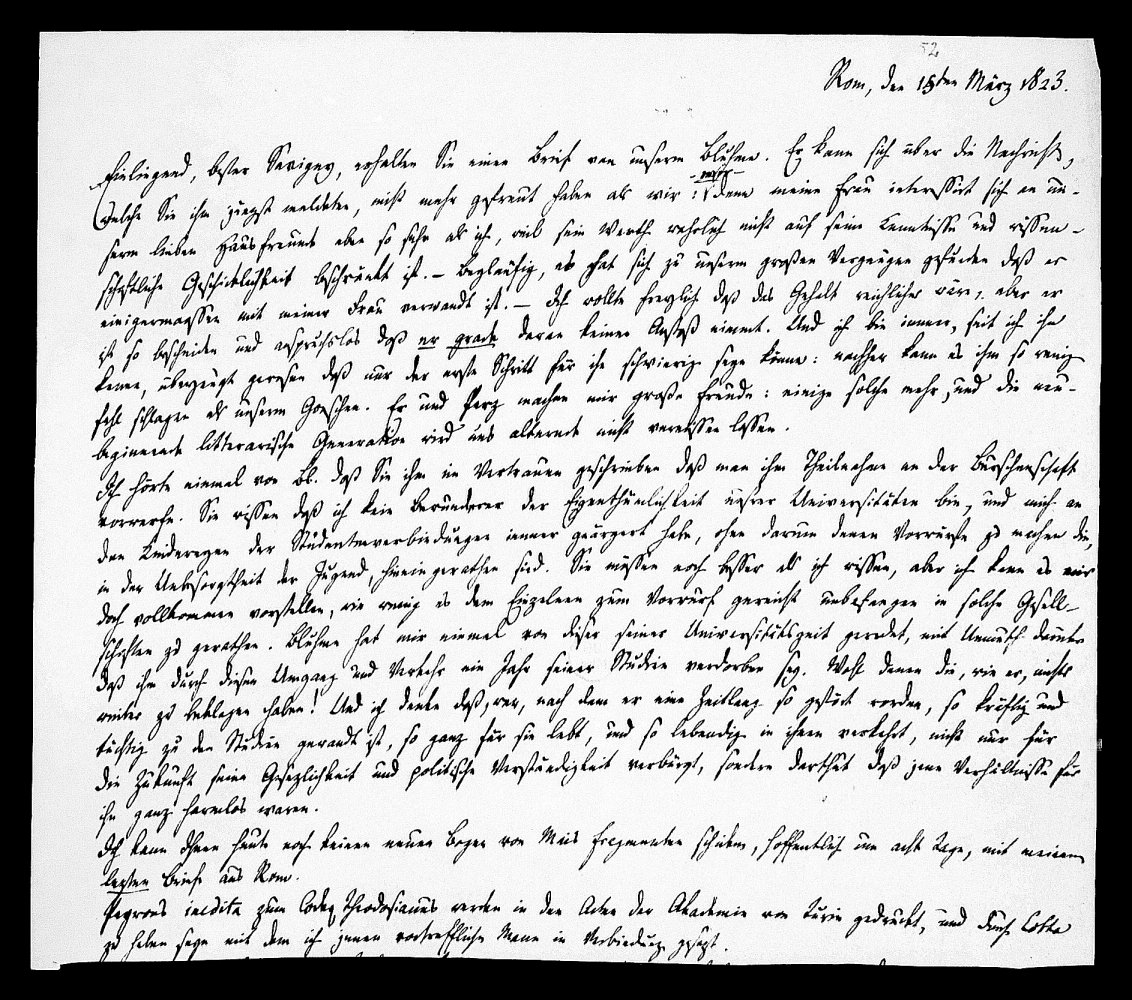 52
Rom, den 15ten März 1823.
Einliegend, bester Savigny, erhalten Sie einen Brief von unserm Bluhme. Er kann sich über die Nachricht,
welche Sie ihm jüngst meldeten, nicht mehr gefreut haben als wir: denn meine Frau interessirt sich an un-
serm lieben Hausfreund eben so sehr als ich, weil sein Werth wahrlich nicht auf seine Kenntnisse und wissen-
schaftliche Geschicklichkeit beschränkt ist. – Beyläufig, es hat sich zu unserm großen Vergnügen gefunden daß er
einigermaassen mit meiner Frau verwandt ist. – Ich wollte freylich daß das Gehalt reichlicher wäre, aber er
ist so bescheiden und anspruchslos daß er grade daran keinen Anstoß nimmt. Und ich bin immer, seit ich ihn
kenne, überzeugt gewesen daß nur der erste Schritt für ihn schwierig seyn könne: nachher kann es ihm so wenig
fehl schlagen als unserm Goeschen. Er und Perz machen mir große Freude: einige solche mehr, und die neu-
beginnende litterarische Generation wird uns alternde nicht vermissen lassen.
Ich hörte einmal von Bl. daß Sie ihm im Vertrauen geschrieben daß man ihm Theilnahme an der Burschenschaft
vorwerfe. Sie wissen daß ich kein Bewunderer der Eigenthümlichkeit unsrer Universitäten bin, und mich an
den Kindereyen der Studentenverbindungen immer geärgert habe, ohne darum denen Vorwürfe zu machen die,
in der Unbesorgtheit der Jugend, hineingerathen sind. Sie müssen noch besser als ich wissen, aber ich kann es mir
doch vollkommen vorstellen, wie wenig es dem Einzelnen zum Vorwurf gereicht unbefangen in solche Gesell-
schaften zu gerathen. Bluhme hat mir einmal von dieser seiner Universitätszeit geredet, mit Unmuth darüber
daß ihm durch diesen Umgang und Verkehr ein Jahr seiner Studien verdorben sey. Wohl denen die, wie er, nichts
weiter zu beklagen haben! Und ich denke daß, wer, nach dem er eine Zeitlang so gestört worden, so kräftig und
tüchtig zu den Studien gewandt ist, so ganz für sie lebt, und so lebendig in ihnen verkehrt, nicht nur für
die Zukunft seine Gesezlichkeit und politische Verständigkeit verbürgt, sondern darthut daß jene Verhältnisse für
ihn ganz harmlos waren.
Ich kann Ihnen heute noch keinen neuen Bogen von Mais Fragmenten schicken, hoffentlich um acht Tage, mit meinem
lezten Briefe aus Rom.
Peyrons inedita zum Codex Theodosianus werden in den Acten der Akademie von Turin gedruckt, und durch Cotta
zu haben seyn mit dem ich jenen vortrefflichen Mann in Verbindung gesezt.